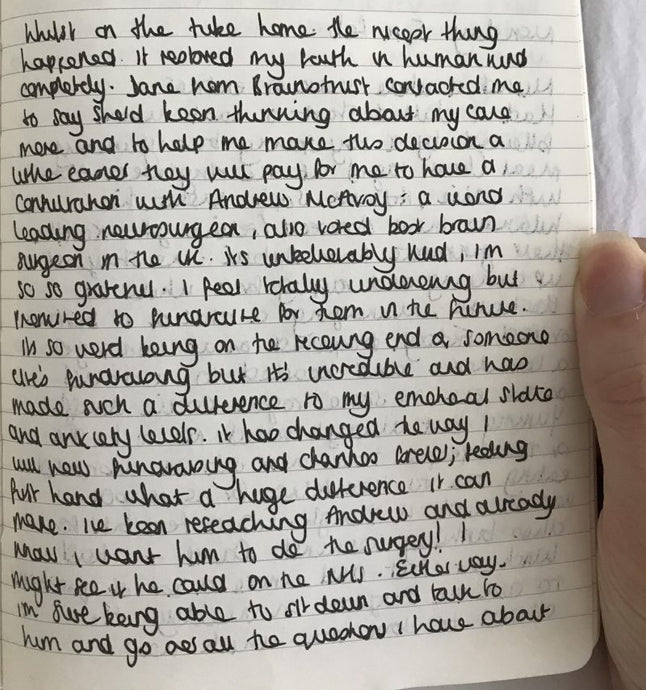 Whilst on the tube home the nicest thing
happened. It restored my faith in human kind
completely. Jane from Brainstrust contacted me
to say she'd been thinking about my case
more and to help me make this decision a
little easier they will pay for me to have a
consultation with Andrew McEvoy : a world
leading neurosurgeon, also voted best brain
surgeon in the UK. It's unbelievably kind, I'm
so so grateful. I feel totally undeserving but
promised to fundraise for them in the future.
It's so weird being on the receiving end of someone
else's fundraising but it's incredible and has
made such a difference to my emotional state
and anxiety levels. It has changed the way I
will view fundraising and charities forever; feeling
first hand what a huge difference it can
make. I've been researching Andrew and already
know I want him to do the surgery! I
might see if he could on the NHS. Either way
I'm sure being able to sit down and talk to
him and go over all the questions I have about